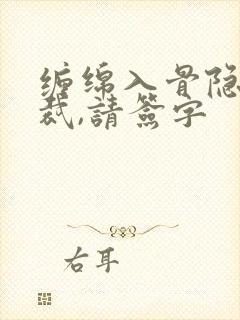 缠绵入骨隐
裁,請簽字
右耳